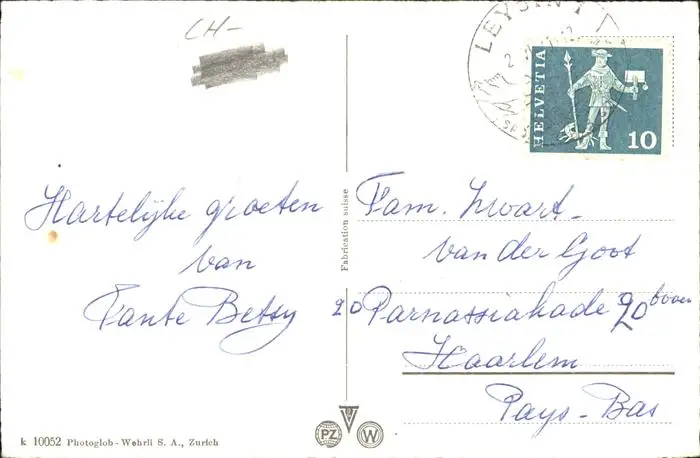 CH-
LEYSIN
HELVETIA
10
Hartelijke groeten
van
Tante Betsy
Fabrication suisse
Fam. Zwart-
van der Goot
20 Parnassiakade 20 boven
Haarlem
Pays-Bas
k 10052 Photoglob-Wehrli S. A., Zurich
PZ W